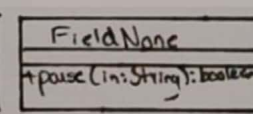 FieldName
+parse(in:String):boolea